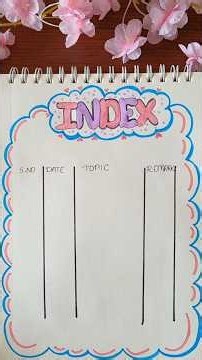 INDEX
S.NO DATE TOPIC REMARK